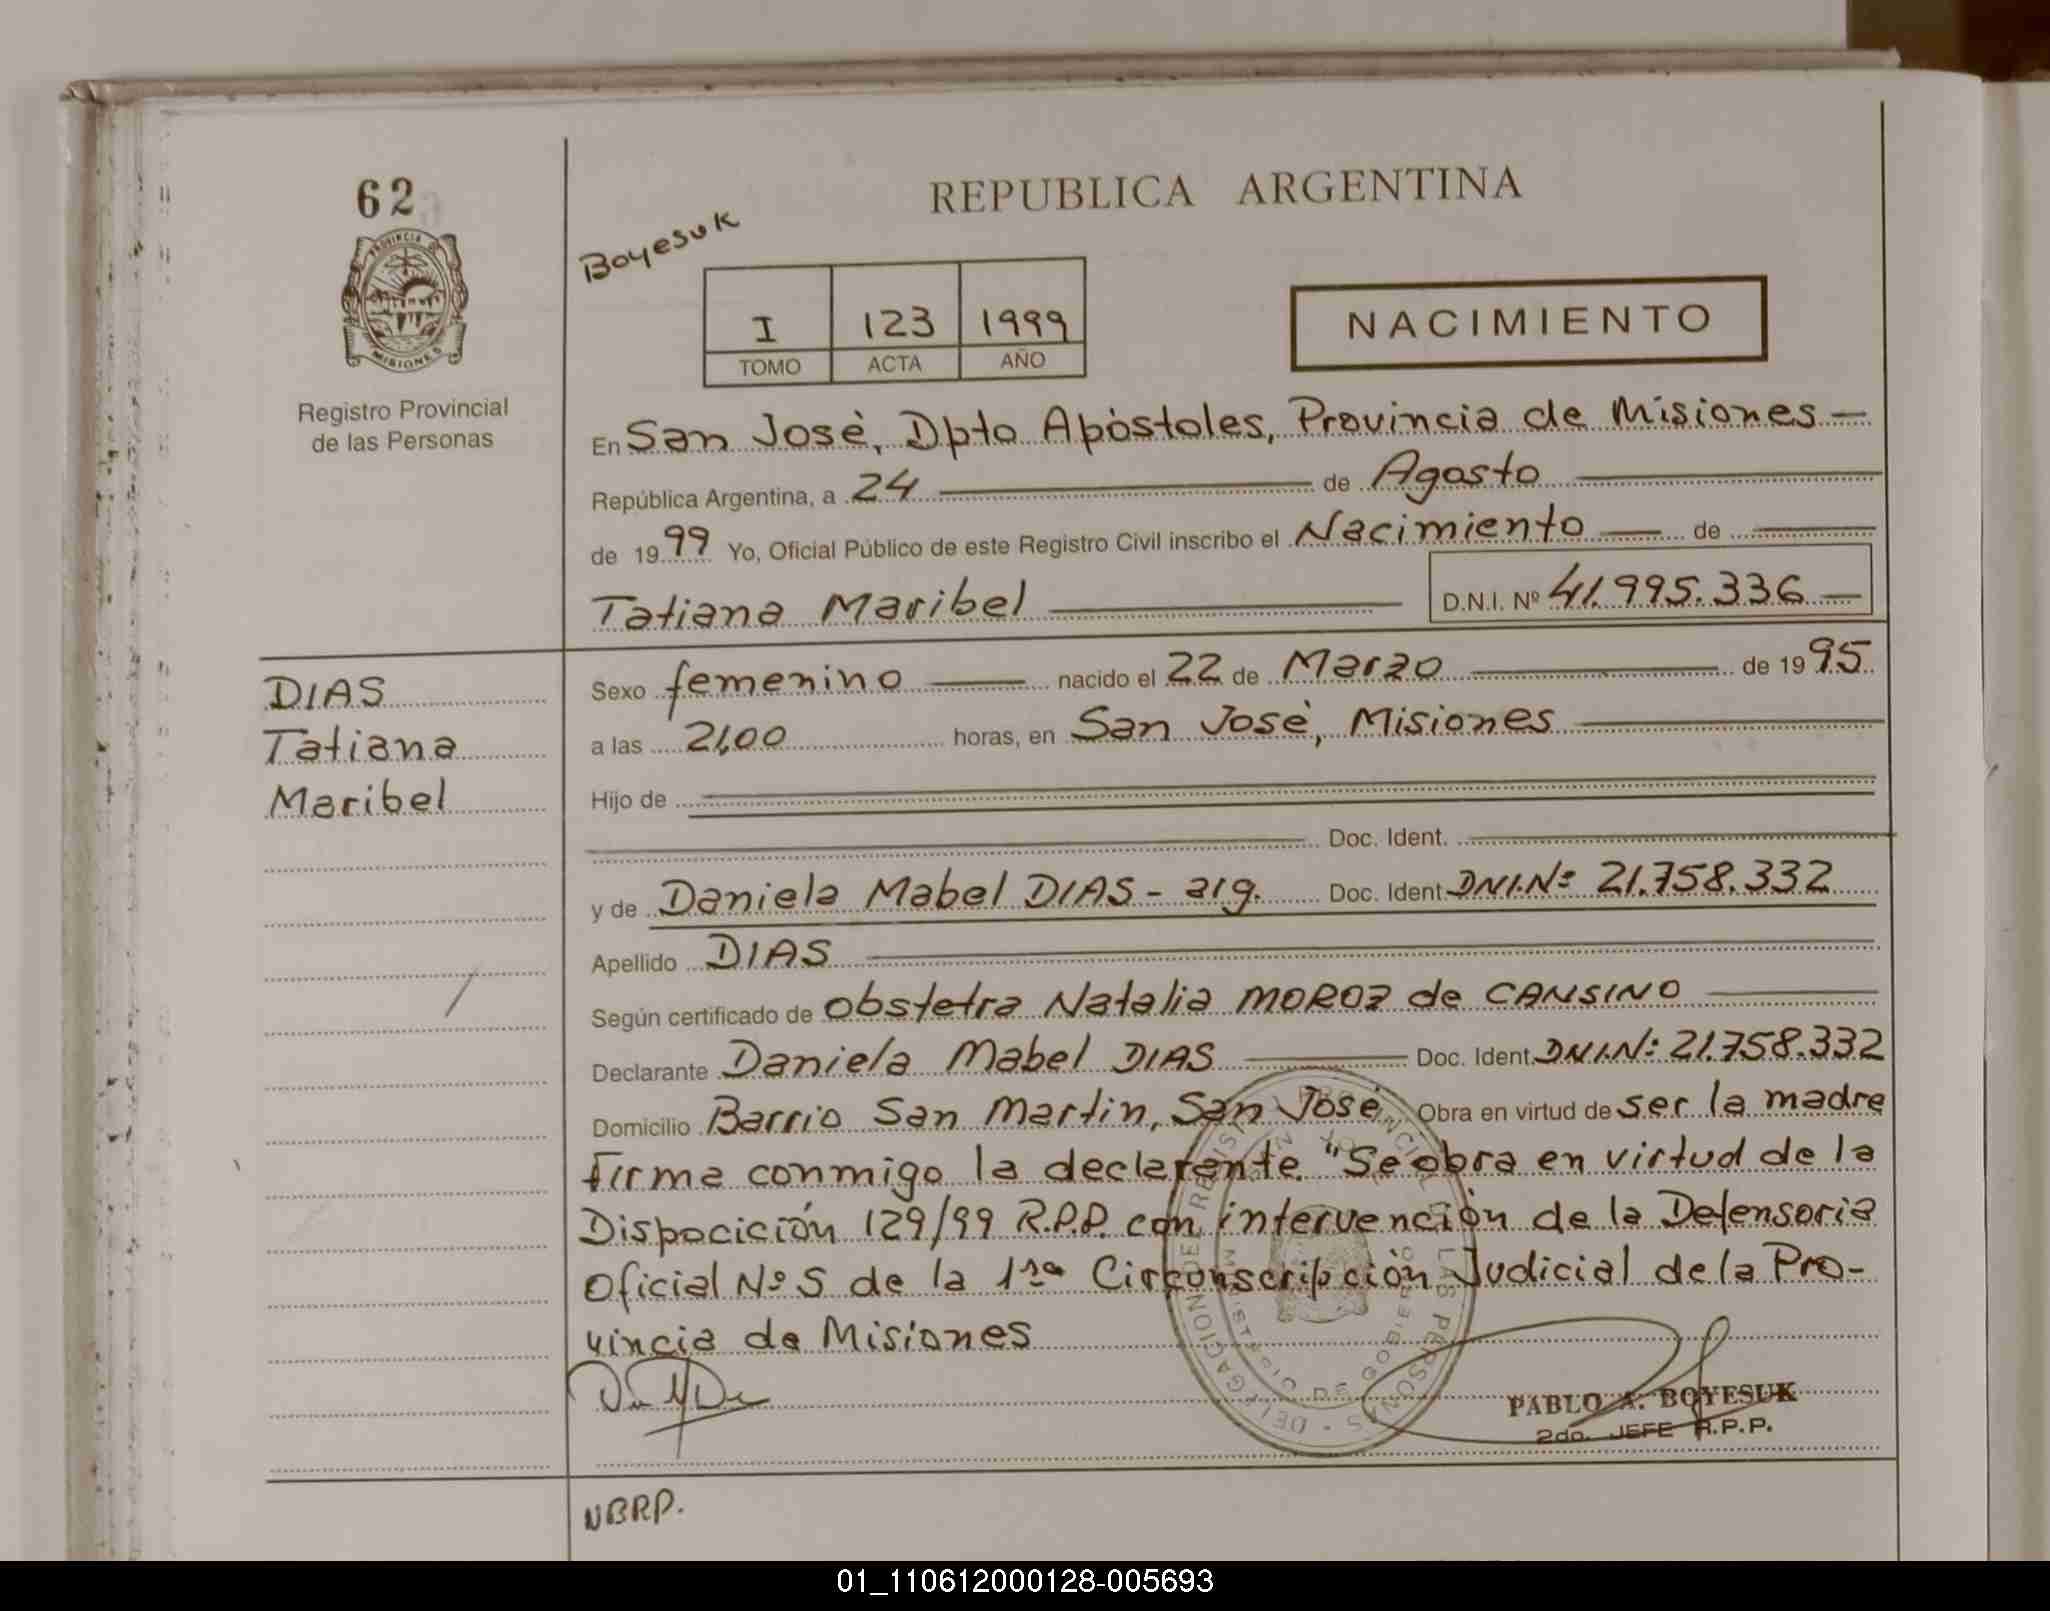 62
PROVINCIA DE
MISIONES
Registro Provincial
de las Personas
Boyesuk
REPUBLICA ARGENTINA
I 123 1999
TOMO ACTA AÑO
NACIMIENTO
En San Josè, Dpto Apòstoles, Provincia de Misiones —
República Argentina, a 24 — de Agosto
de 1999 Yo, Oficial Público de este Registro Civil inscribo el Nacimiento — de
Tatiana Maribel — D.N.I. Nº 41.995.336 —
DIAS
Tatiana
Maribel
Sexo femenino — nacido el 22 de Marzo — de 1995
a las 21,00 horas, en San Josè, Misiones
Hijo de
Doc. Ident.
y de Daniela Mabel DIAS - arg. Doc. Ident. DNI.Nº 21.758.332
Apellido DIAS
Según certificado de obstetra Natalia MOROZ de CANSINO
Declarante Daniela Mabel DIAS — Doc. Ident. DNI.Nº: 21.758.332
Domicilio Barrio San Martin, San Josè Obra en virtud de ser la madre
firma conmigo la declarante. "Se obra en virtud de la
Disposición 129/99 R.P.P. con intervención de la Defensoria
Oficial Nº 5 de la 1ra Circunscripción Judicial de la Pro-
vincia de Misiones
PABLO A. BOYESUK
2do. JEFE R.P.P.
NBRP.
01_110612000128-005693